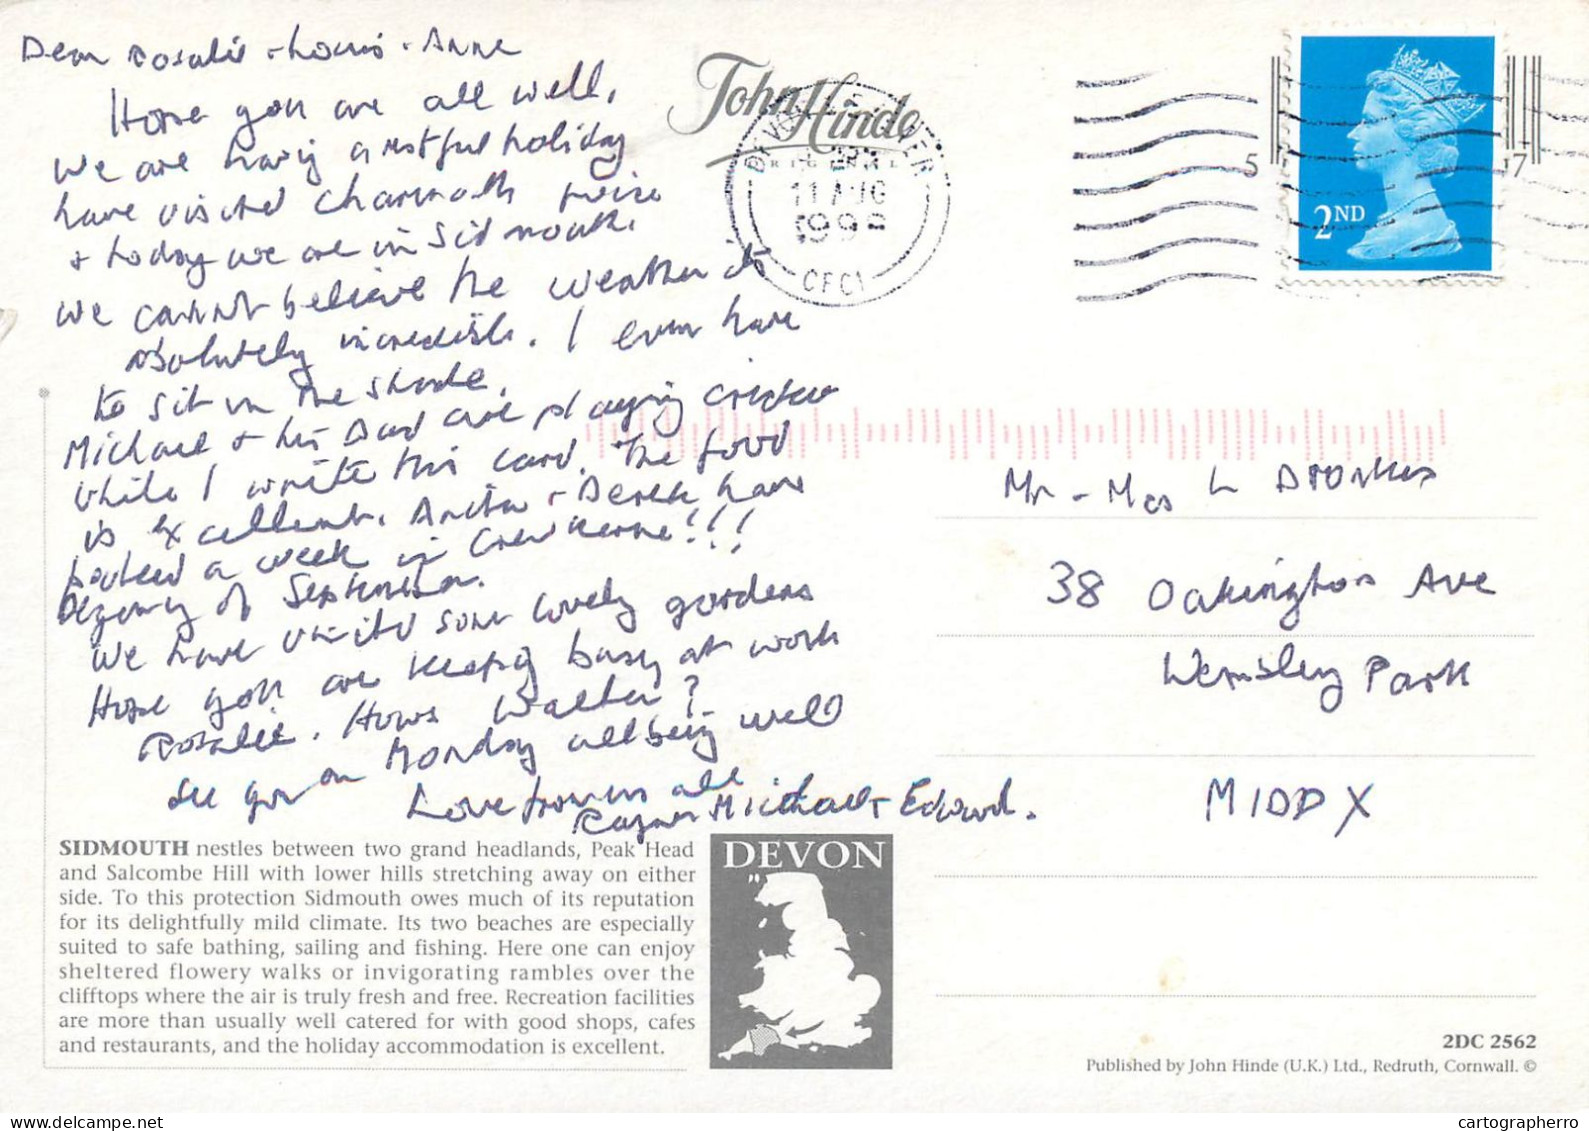 Dear Rosalie + Louis + Anne
Hope you are all well,
We are having a restful holiday
have visited Charmouth twice
+ today we are in Sidmouth.
We cannot believe the weather its
absolutely incredible. I even have
to sit in the shade.
Michael + his Dad are playing cricket
while I write this card. The food
is excellent. Anita + Derek have
booked a week in Crewkerne!!!
Beginning of September.
We have visited some lovely gardens
Hope you are keeping busy at work
Rosalie. Hows Walter?
See you on Monday all being well
Love from us all
Michael + Edward.
John Hinde
ORIGINAL
11 AUG
199
2ND
5 7
Mr - Mrs L
38 Oakington Ave
Wembley Park
MIDDX
SIDMOUTH nestles between two grand headlands, Peak Head
and Salcombe Hill with lower hills stretching away on either
side. To this protection Sidmouth owes much of its reputation
for its delightfully mild climate. Its two beaches are especially
suited to safe bathing, sailing and fishing. Here one can enjoy
sheltered flowery walks or invigorating rambles over the
clifftops where the air is truly fresh and free. Recreation facilities
are more than usually well catered for with good shops, cafes
and restaurants, and the holiday accommodation is excellent.
DEVON
2DC 2562
Published by John Hinde (U.K.) Ltd., Redruth, Cornwall. ©
cartographerro